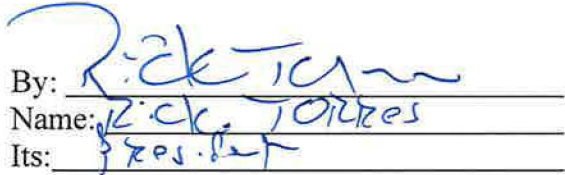 By: Rick Torres
Name: Rick. TORRES
Its: President